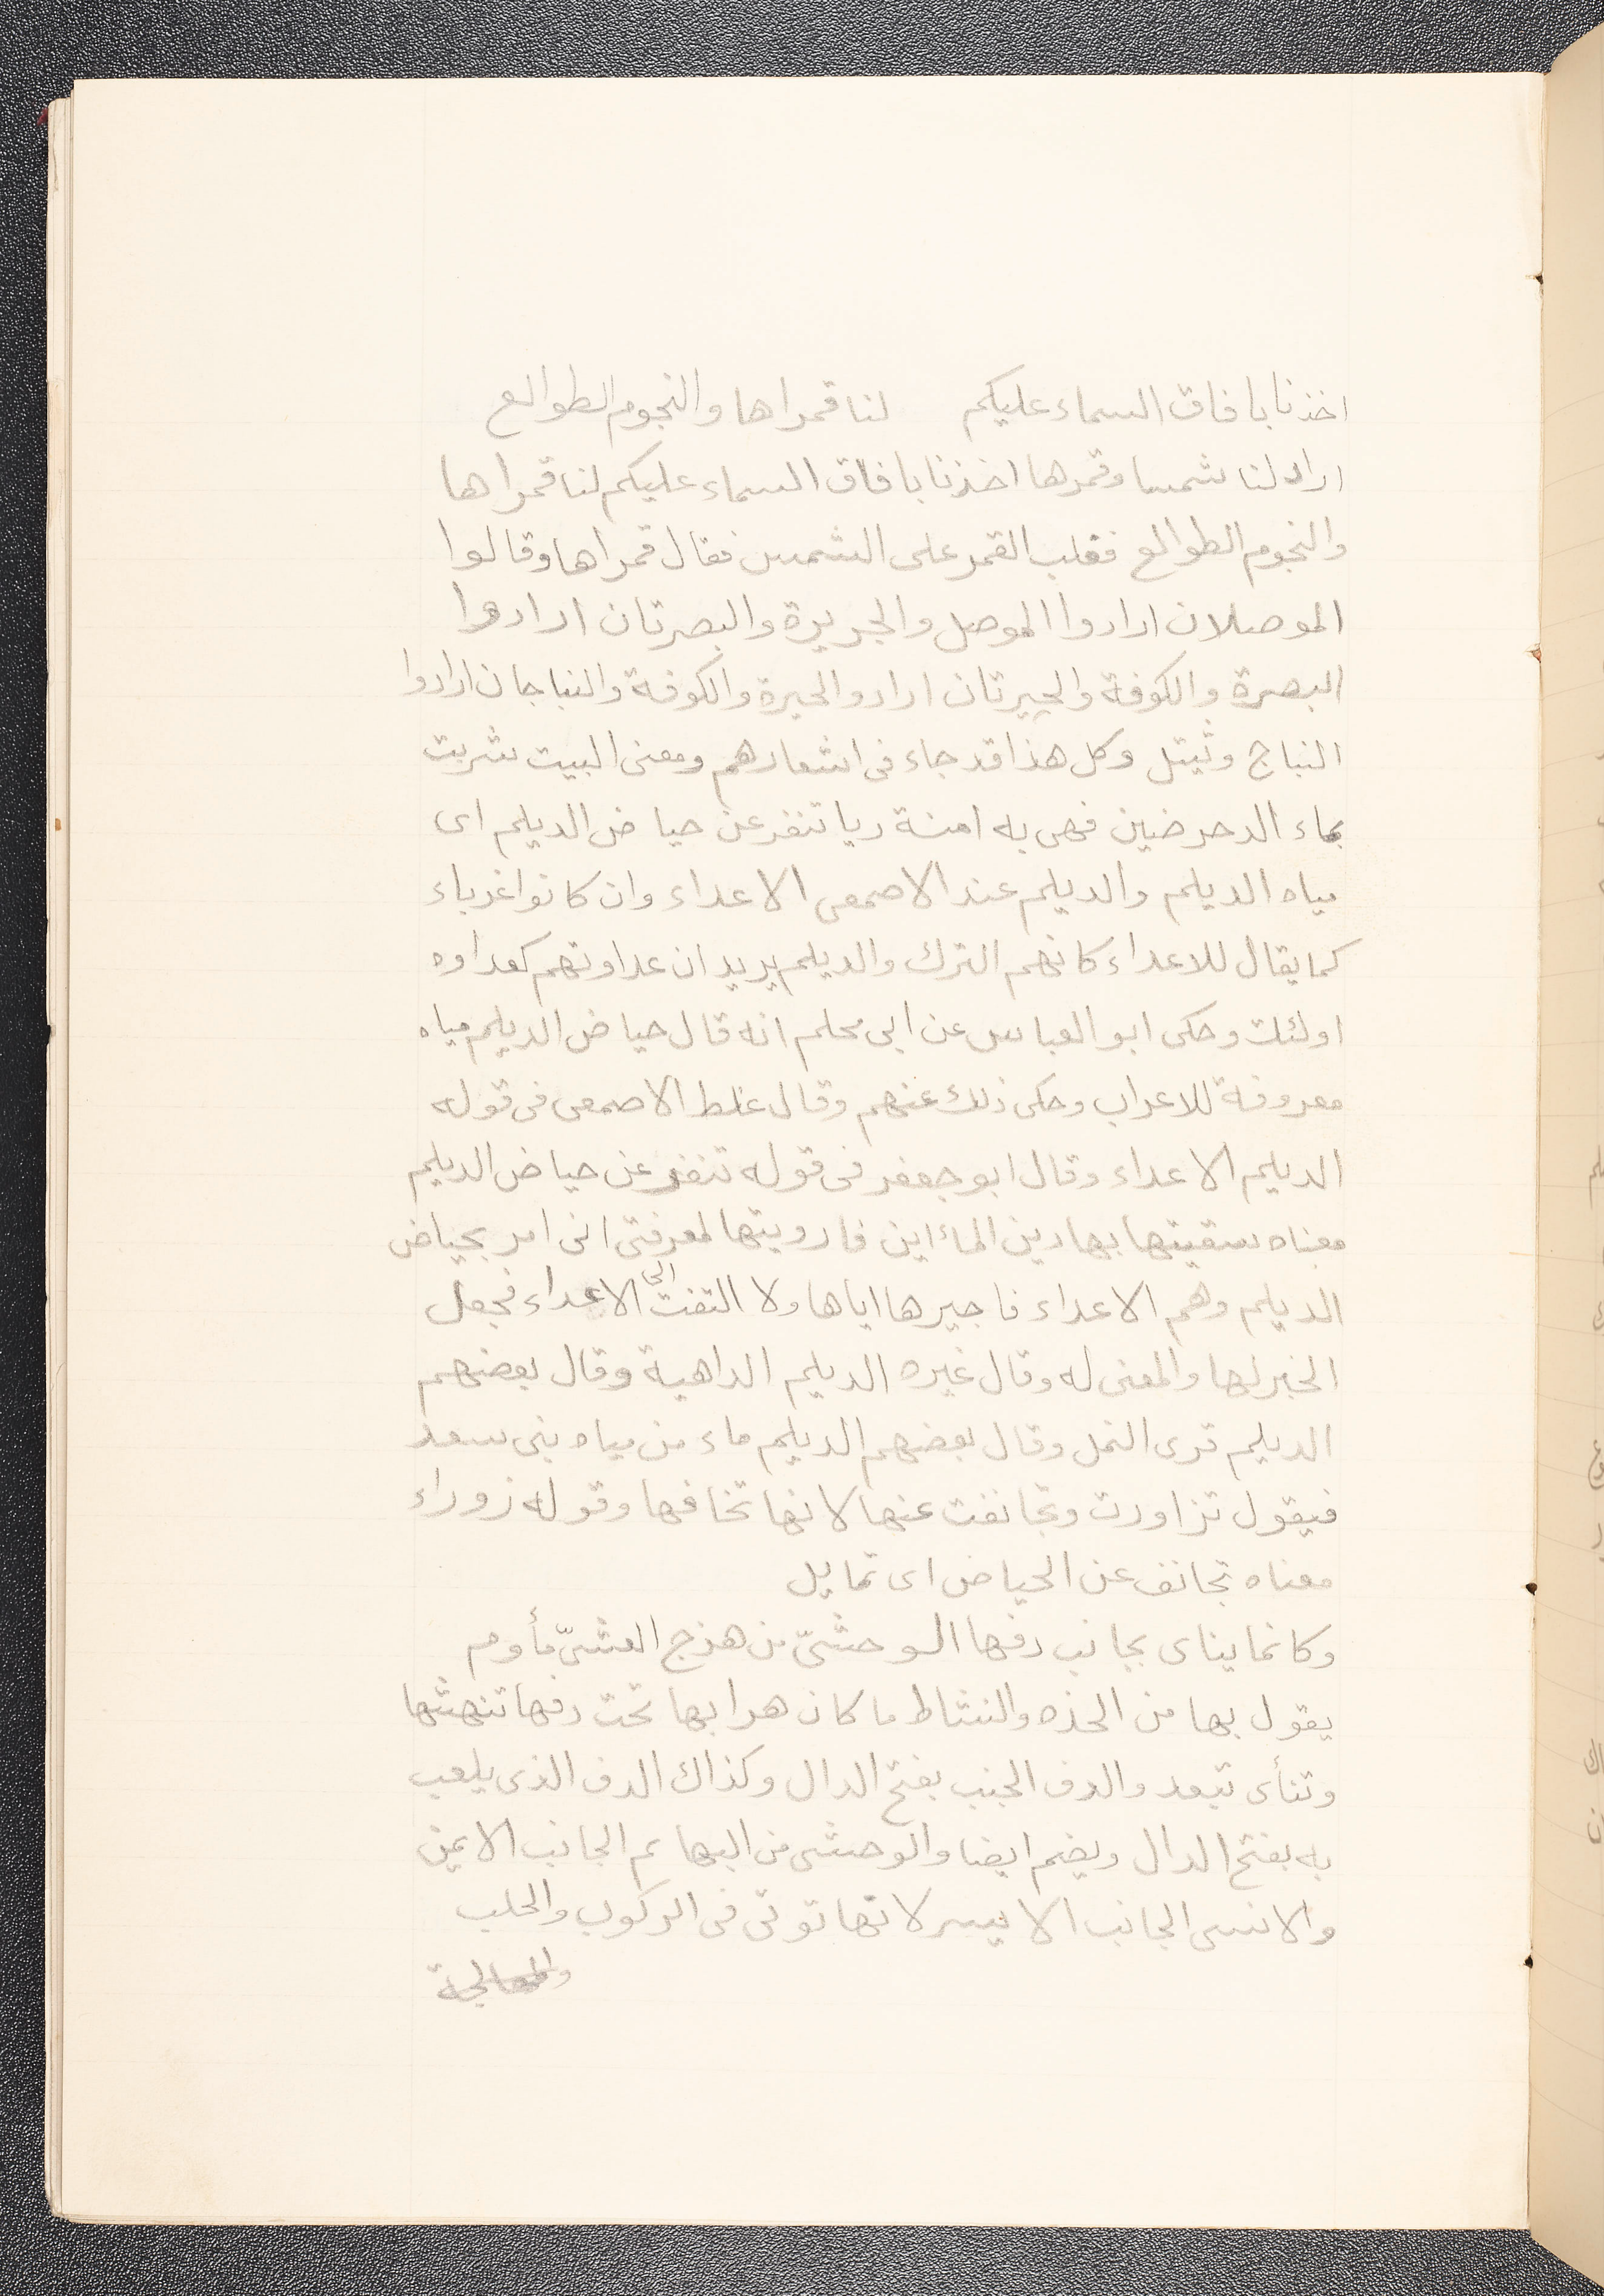 اخذنا بافاق السماء عليكم لنا قمراها والنجوم الطوالع
اراد لنا شمسا وقمرها اخذنا بافاق السماء عليكم لنا قمراها
والنجوم الطوالع فغلب القمر على الشمس فقال قمراها وقالوا
الموصلان ارادوا الموصل والجزيرة والبصرتان ارادوا
البصرة والكوفة والحيرتان ارادو الحيرة والكوفة والنباجان ارادوا
النباج وثيتل وكل هذا قد جاء فى اشعارهم ومعنى البيت شربت
بماء الدحرضين فهى به امنة ريا تنفر عن حياض الديلم اى
مياه الديلم والديلم عند الاصمعى الاعداء وان كانوا غرباء
كما يقال للاعداء كانهم الترك والديلم يريد ان عداوتهم كعداوه
اولئك وحكى ابو العباس عن ابى محلم انه قال حياض الديلم مياه
معروفة للاعراب وحكى ذلك عنهم وقال غلط الاصمعى فى قوله
الديلم الاعداء وقال ابو جعفر فى قوله تنفر عن حياض الديلم
معناه سقيتها بهاذين الماءاين فارويتها لمعرفتى انى امر بحياض
الديلم وهم الاعداء فاجيرها اياها ولا التفت الى الاعداء فجعل
الخبر لها والمعنى له وقال غيره الديلم الداهية وقال بعضهم
الديلم قرى النمل وقال بعضهم الديلم ماء من مياه بنى سعد
فيقول تزاورت وتجانفت عنها لانها تخافها وقوله زوراء
معناه تجانف عن الحياض اى تمايل
وكانما يناى بجانب دفها الوحشىّ من هزج العشىّ مأوم
يقول بها من الحذه والنشاط ما كان هرا بها تحت دفها تنهشها
وتنأى تبعد والدف الجنب بفتح الدال وكذاك الدف الذى يلعب
به بفتح الدال ويضم ايضا والوحشى من البهايم الجانب الايمن
والانسى الجانب الايسر لانها توتى فى الركوب والحلب
والمعالجة